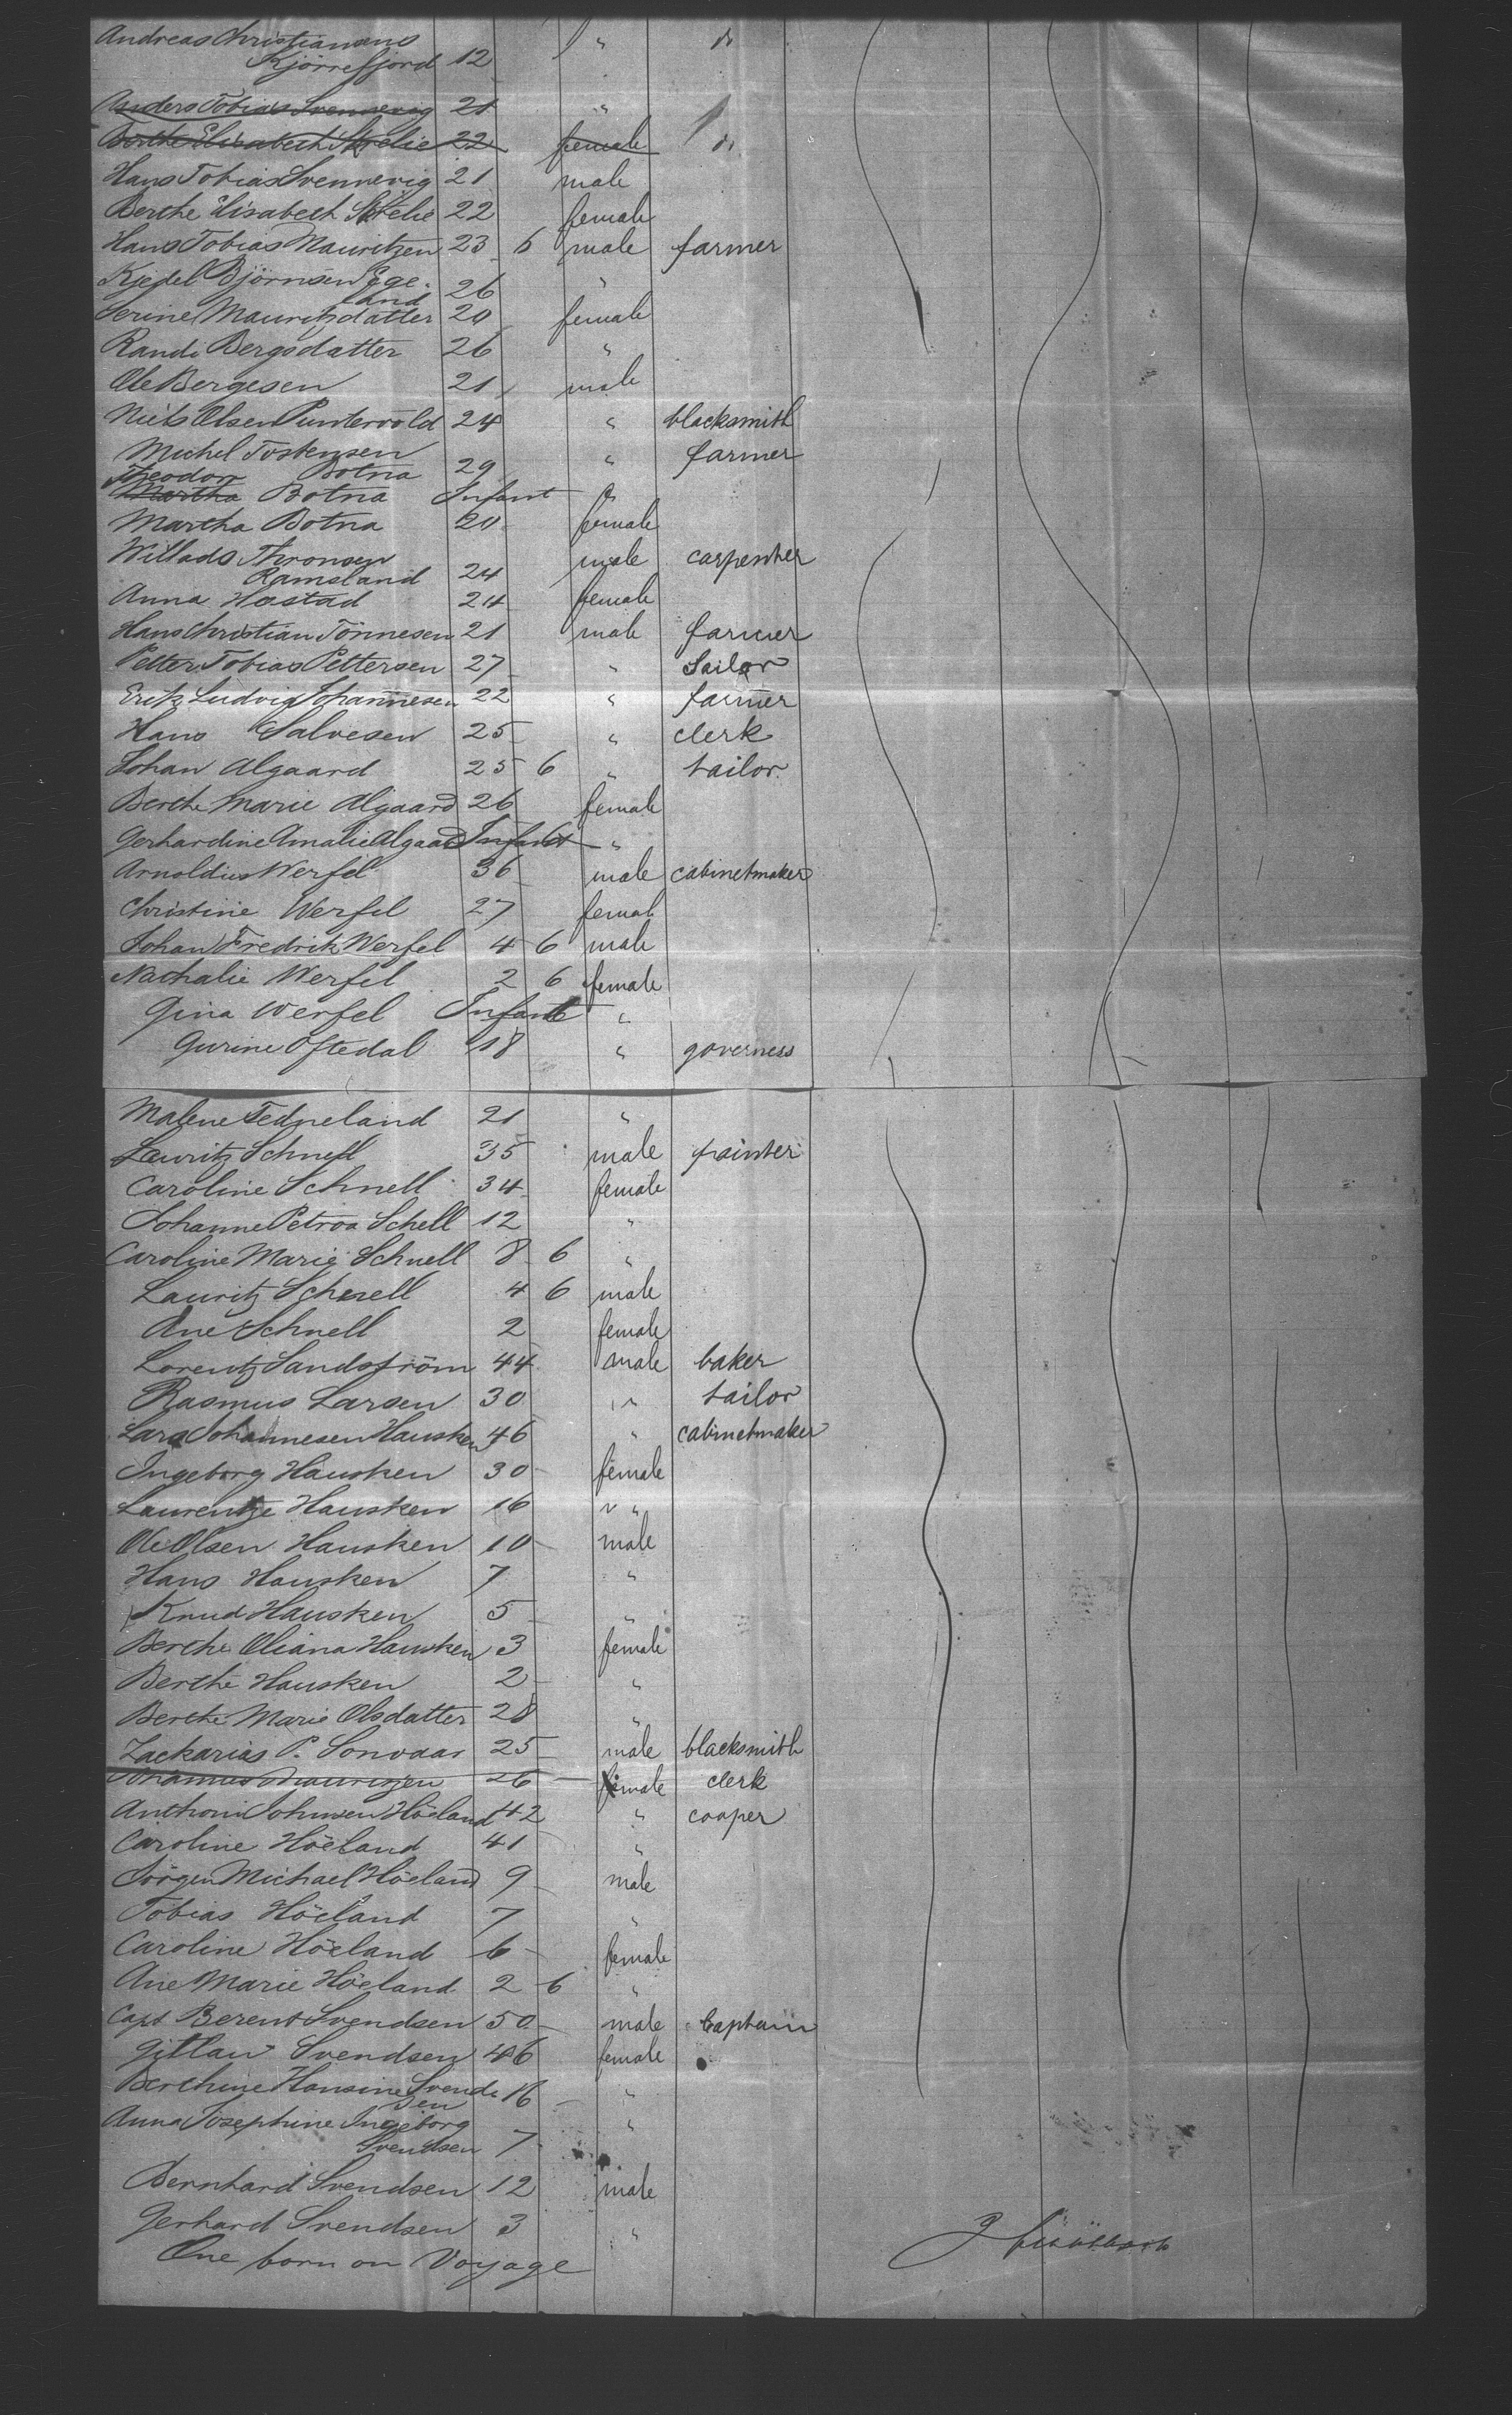 Andreas Christianens " do
Kjörrefjord 12
Anders Tobias Svennevig 21 "
Berthe Elisabeth Strelie 22 female do
Hans Tobias Svennevig 21 male
Berthe Elisabeth Strelie 22 female
Hans Tobias Mauritzen 23 6 male farmer
Kjedel Björnsen Ege- 26 "
land
Serine Mauritzdatter 20 female
Randi Bergsdatter 26 "
Ole Bergesen 21 male
Niels Olsen Puntervold 24 " blacksmith
Michel Tostensen " farmer
Botna 29
Theodor
Martha Botna Infant "
Martha Botna 20 female
Willads Thronsen male carpenter
Ramsland 24
Anna Hastad 24 female
Hans Christian Tönnesen 21 male farmer
Petter Tobias Pettersen 27 " Sailor
Erik Ludvig Johannesen 22 " farmer
Hans Salvesen 25 " clerk
Johan Algaard 25 6 " tailor
Berthe Marie Algaard 26 female
Gerhardine Amalie Algaard Infant "
Arnoldius Werfel 36 male cabinetmaker
Christine Werfel 27 female
Johan Fredrik Werfel 4 6 male
Nathalie Werfel 2 6 female
Gina Werfel Infant "
Gurine Oftedal 18 " governess
Malene Tedneland 21 "
Lauritz Schnell 35 male painter
Caroline Schnell 34 female
Johanne Petroa Schell 12 "
Caroline Marie Schnell 8 6 "
Lauritz Schnell 4 6 male
Ane Schnell 2 female
Lorentz Sandström 44 male baker
Rasmus Larsen 30 " tailor
Lars Johannesen Hausken 46 " cabinetmaker
Ingeborg Hausken 30 female
Laurentze Hausken 16 "
Ole Olsen Hausken 10 male
Hans Hausken 7 "
Knud Hausken 5 "
Berthe Oliana Hausken 3 female
Berthe Hausken 2 "
Berthe Marie Olsdatter 28 "
Zackarias P. Sonvaar 25 male blacksmith
Johannes Mauritzen 26 female clerk
Anthoni Johnsen Höeland 42 " cooper
Caroline Höeland 41 "
Jörgen Michael Höeland 9 male
Tobias Höeland 7 "
Caroline Höeland 6 female
Ane Marie Höeland 2 6 "
Capt Berent Svendsen 50 male Captain
Gitlaw Svendsen 46 female
Berthine Hansine Svend- 16 "
sen
Anna Josephine Ingeborg "
Svendsen 7
Bernhard Svendsen 12 male
Gerhard Svendsen 3 "
One born on Voyage